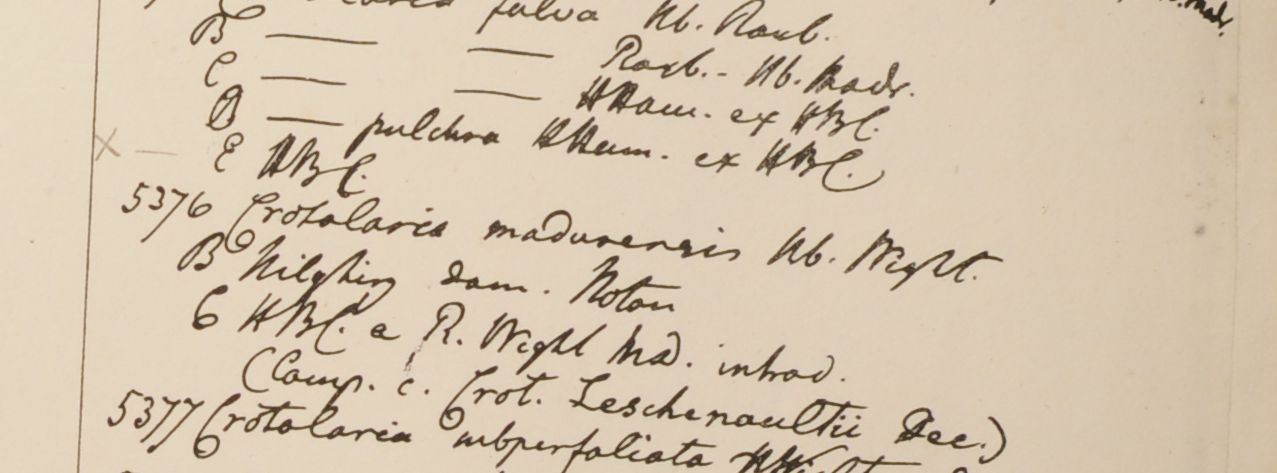 fulva Hb. Roxb.
B — — Roxb. - Hb. Madr.
C — — HHam. ex HBC.
D — pulchra HHam. ex HBC.
X — E HBC.
5376 Crotalaria madurensis Hb. Wight.
B Nilghiry dom. Noton
C HBC. a R. Wight Md. introd.
(Comp. c. Crot. Leschenaultii Dec.)
5377 Crotalaria subperfoliata